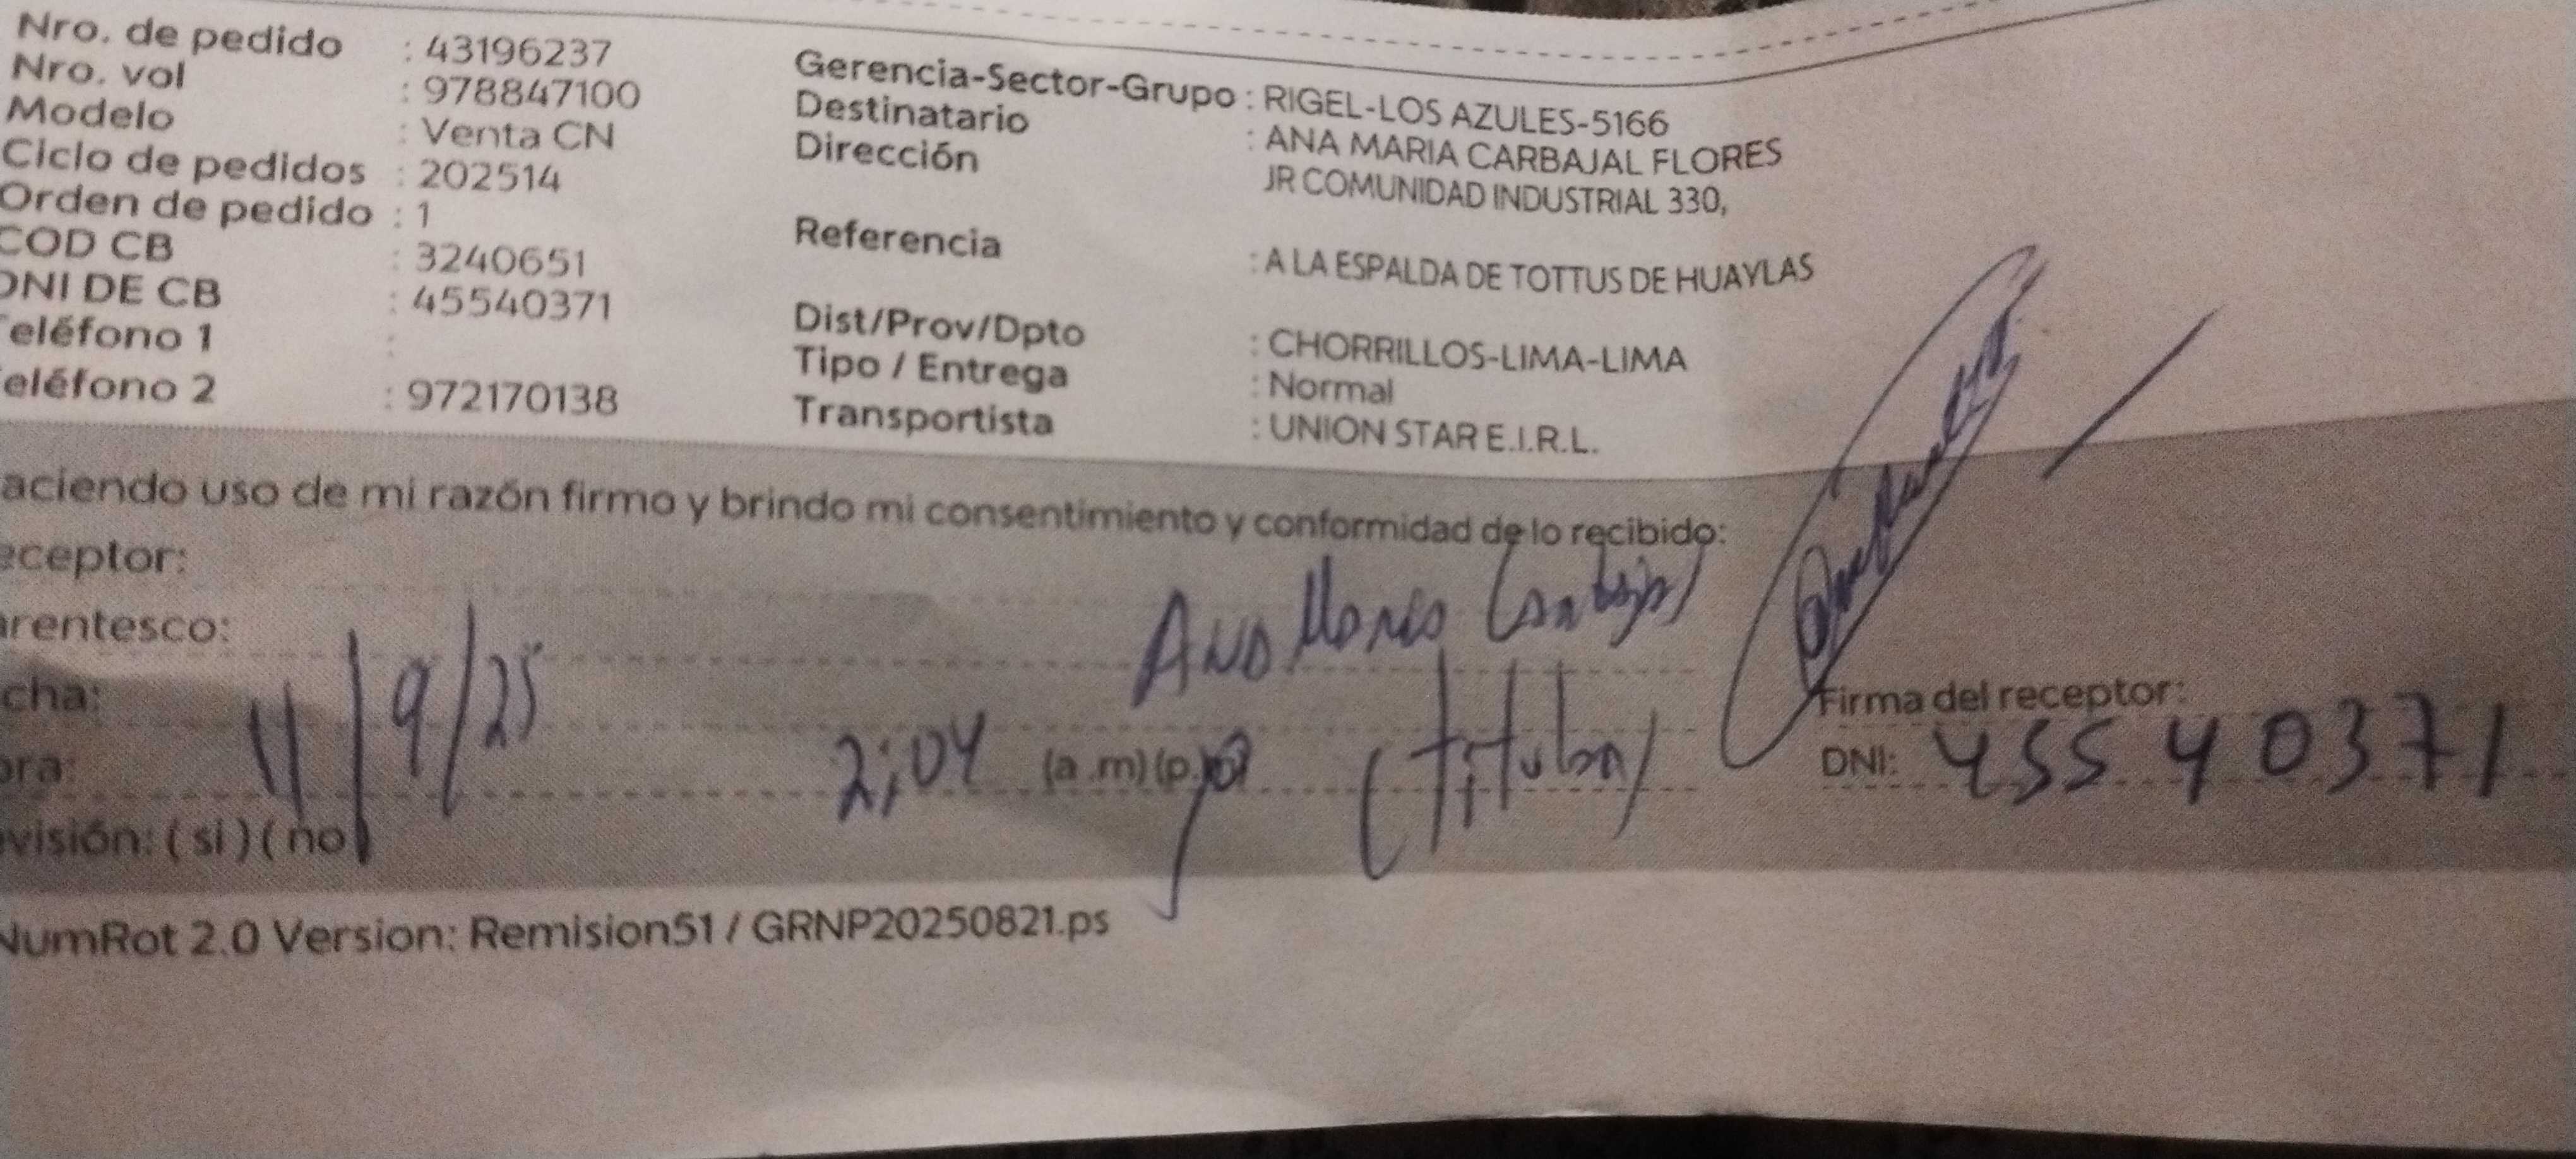 Nro. de pedido : 43196237
Nro. vol : 978847100
Modelo : Venta CN
Ciclo de pedidos : 202514
Orden de pedido : 1
COD CB : 3240651
DNI DE CB : 45540371
Teléfono 1 :
Teléfono 2 : 972170138
Gerencia-Sector-Grupo : RIGEL-LOS AZULES-5166
Destinatario : ANA MARIA CARBAJAL FLORES
Dirección JR COMUNIDAD INDUSTRIAL 330,
Referencia : A LA ESPALDA DE TOTTUS DE HUAYLAS
Dist/Prov/Dpto : CHORRILLOS-LIMA-LIMA
Tipo / Entrega : Normal
Transportista : UNION STAR E.I.R.L.
aciendo uso de mi razón firmo y brindo mi consentimiento y conformidad de lo recibido:
eceptor: Ana Maria Carbajal
arentesco: (titular)
cha: 11/9/25
ora: 2:04 (a.m)(p.m)
visión: ( si ) ( no )
Firma del receptor:
DNI: 45540371
NumRot 2.0 Version: Remision51 / GRNP20250821.ps